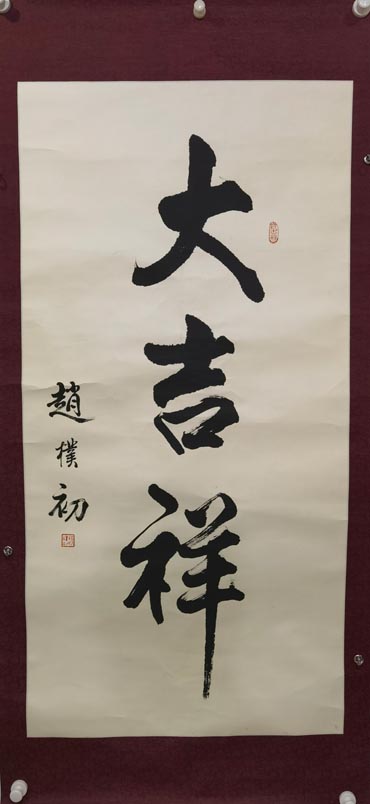 大吉祥
趙樸初